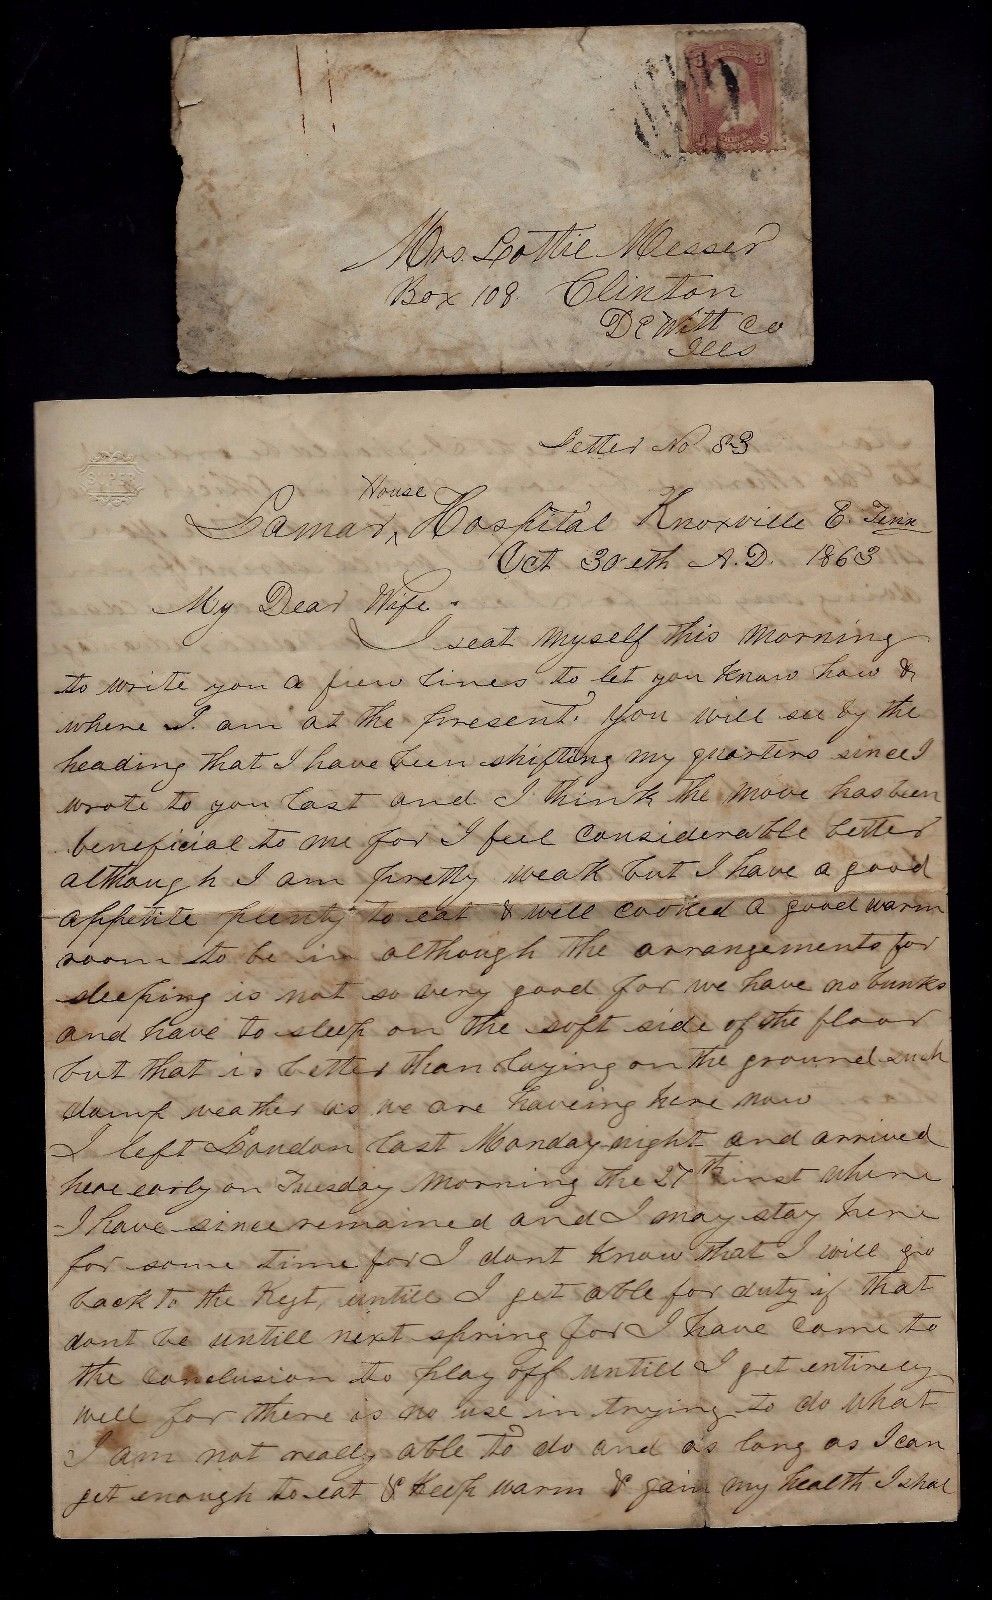 Mrs. Lottie Messer
Box 108. Clinton
De Witt Co
Ills
Letter No 83
House
Lamar ^ Hospital Knoxville E. Tenn
Oct 30eth A.D. 1863
My Dear Wife.
I seat myself this morning
to write you a fiew lines to let you know how &
where I am at the present. You will see by the
heading that I have been shifting my quarters since I
wrote to you last and I think the move has been
beneficial to me for I feel considerable better
although I am pretty weak but I have a good
appetite plenty to eat & well cooked a good warm
room to be in although the arrangements for
sleeping is not so very good for we have no bunks
and have to sleep on the soft side of the floor
but that is better than laying on the ground such
damp weather as we are haveing here now
I left Loudon last Monday night and arrived
here early on Tuesday morning the 27th inst where
I have since remained and I may stay here
for some time for I dont know that I will go
back to the Regt, untill I get able for duty if that
dont be untill next spring for I have come to
the conclusion to play off untill I get entirely
well for there is no use in trying to do what
I am not really able to do and as long as I can
get enough to eat & keep warm & gain my health I shal